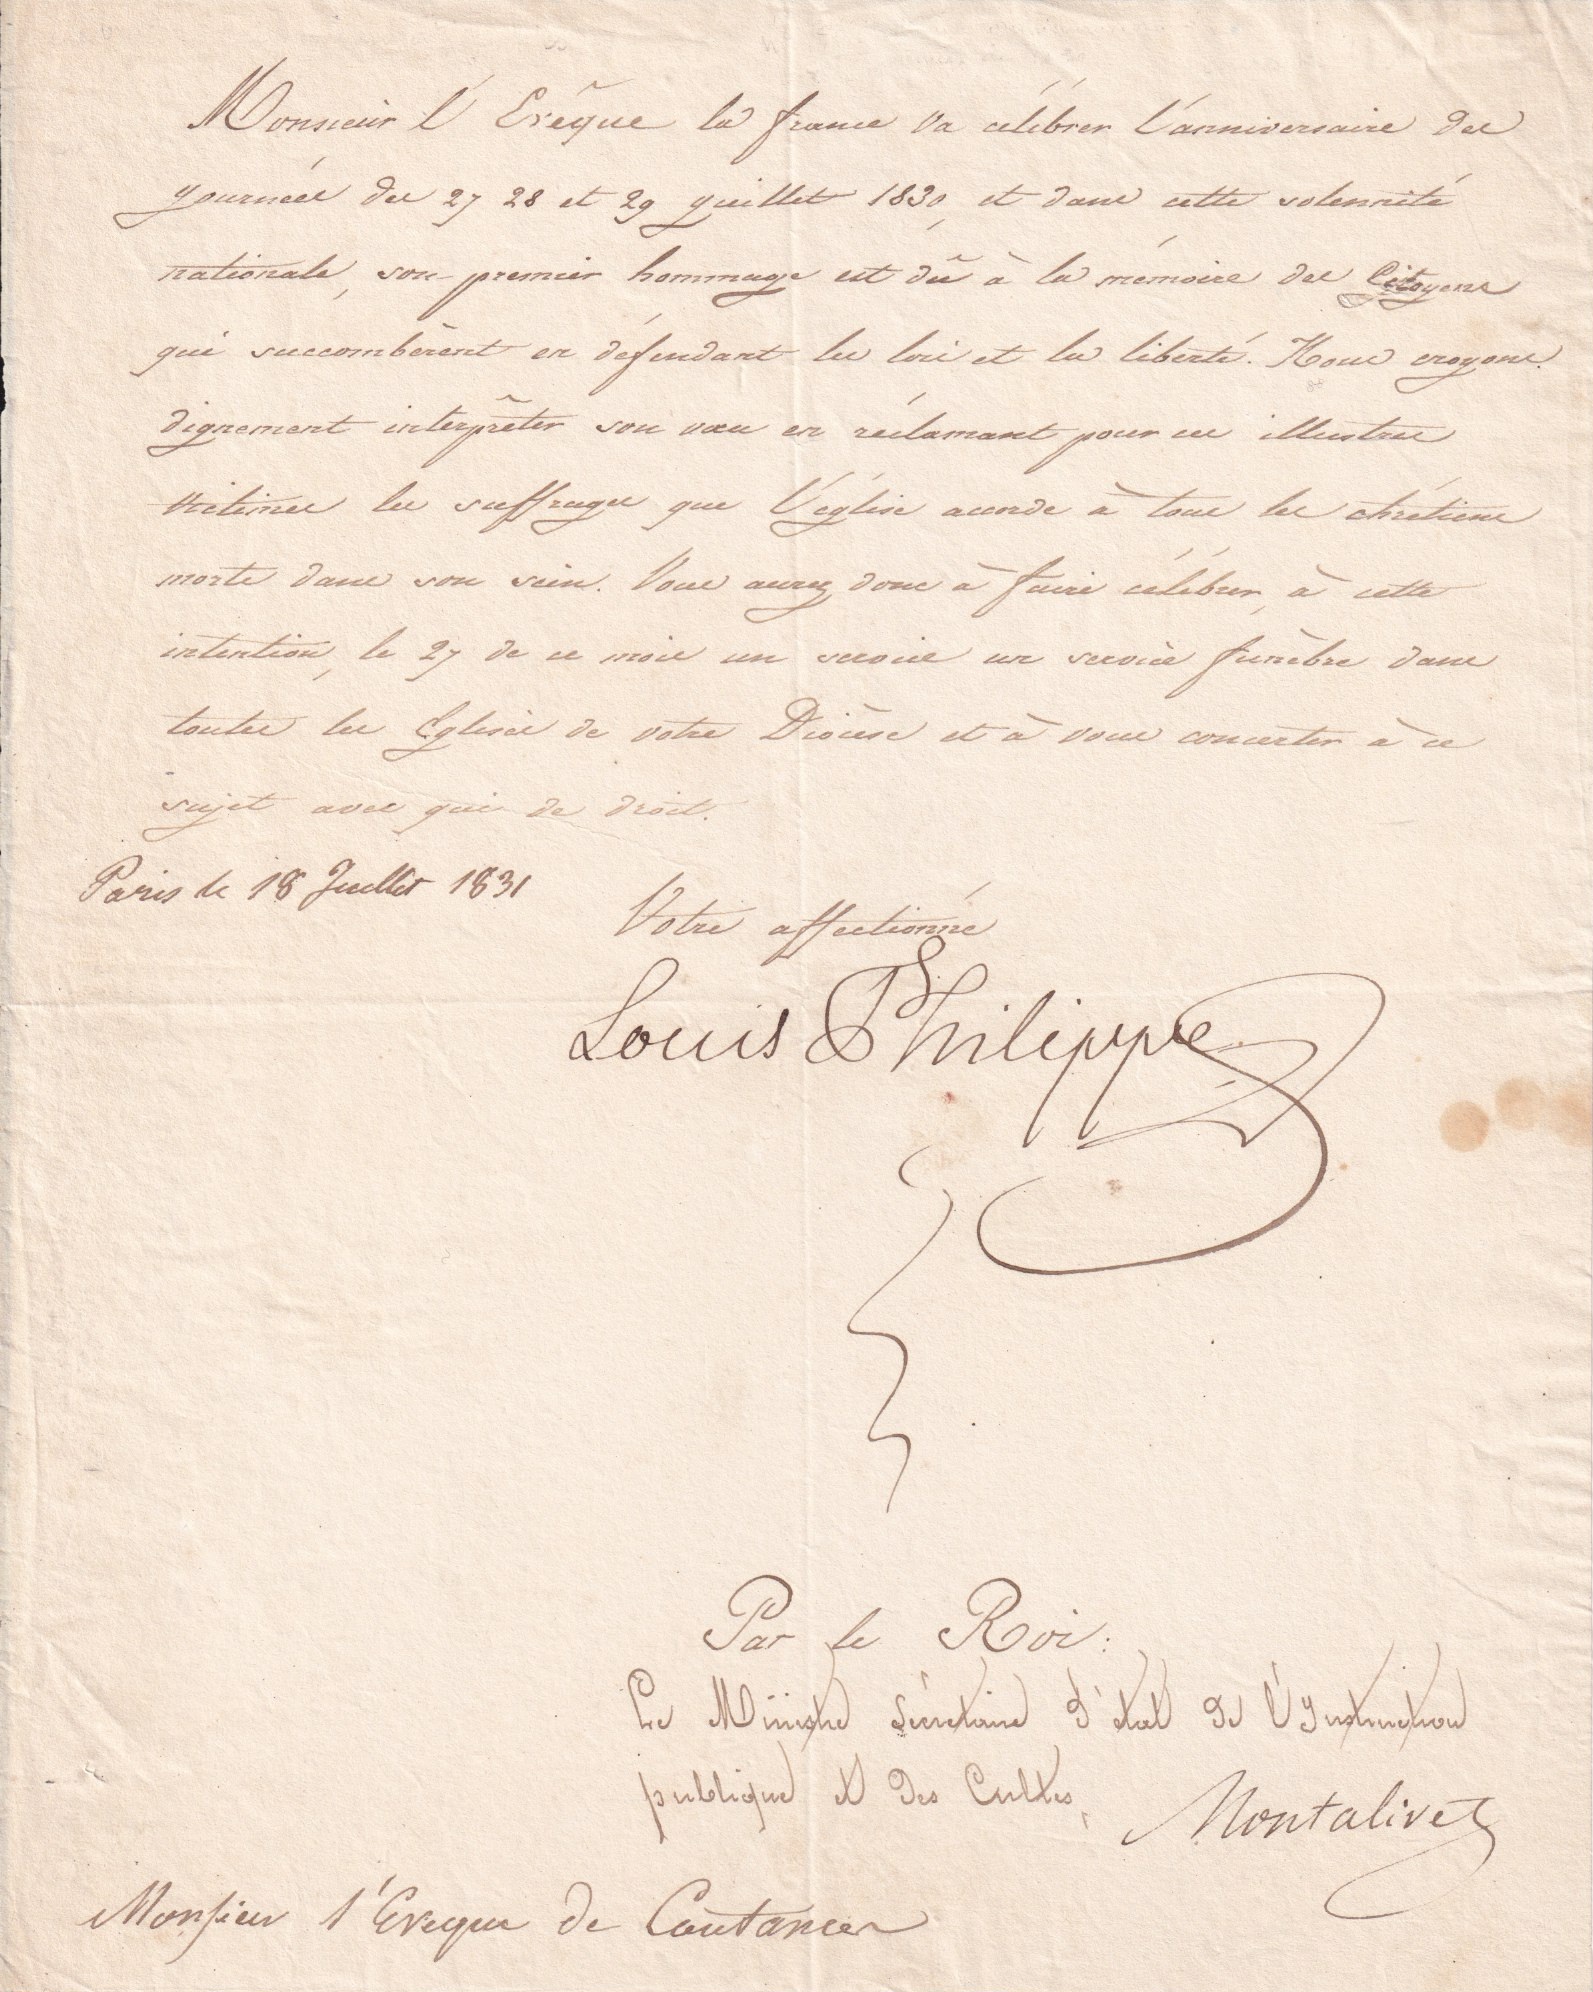 Monsieur l'Evêque la france va célébrer l'anniversaire des
journées des 27 28 et 29 juillet 1830, et dans cette solennité
nationale, son premier hommage est dû à la mémoire des Citoyens
qui succombèrent en défendant les lois et la liberté. Nous croyons
dignement interprêter son vœu en réclamant pour ces illustres
victimes les suffrages que l'église accorde à tous les chrétiens
morts dans son sein. Vous aurez donc à faire célébrer, à cette
intention, le 27 de ce mois un service un service funèbre dans
toutes les Eglises de votre Diocèse et à vous concerter à ce
sujet avec qui de droit.
Paris le 18 Juillet 1831
Votre affectionné
Louis Philippe
Par le Roi:
Le Ministre Sécretaire d'état de l'Instruction
publique et des Cultes,
Montalivet
Monsieur l'Eveque de Coutances